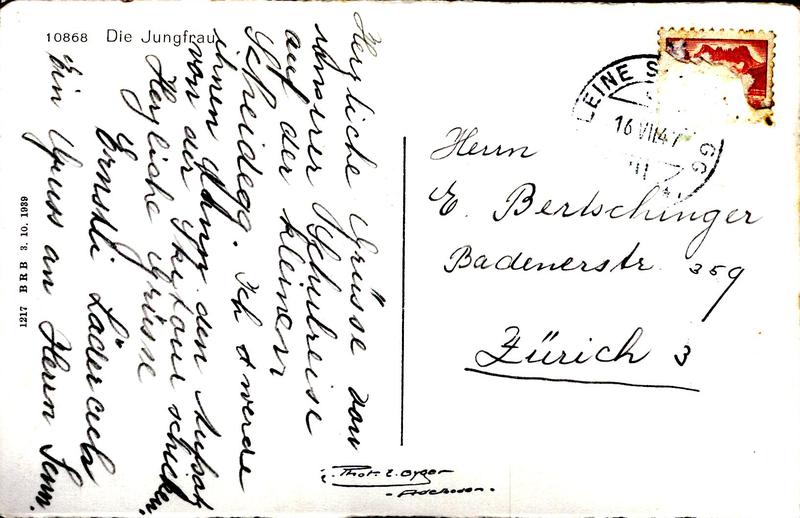 10868 Die Jungfrau
Herzliche Grüsse von
unserer Schulreise
auf der kleinen
Scheidegg. Ich werde
ihnen dann den Aufsatz
von der Skitour schicken.
Herzliche Grüsse
Ernstli Läderach
Ein Gruss an Herrn Senn.
1217 BRB 3. 10. 1939
LEINE S GG
16 VII 47
Herrn
E. Bertschinger
Badenerstr. 359
Zürich 3
Phot. E. Gyger
- Adelboden. -